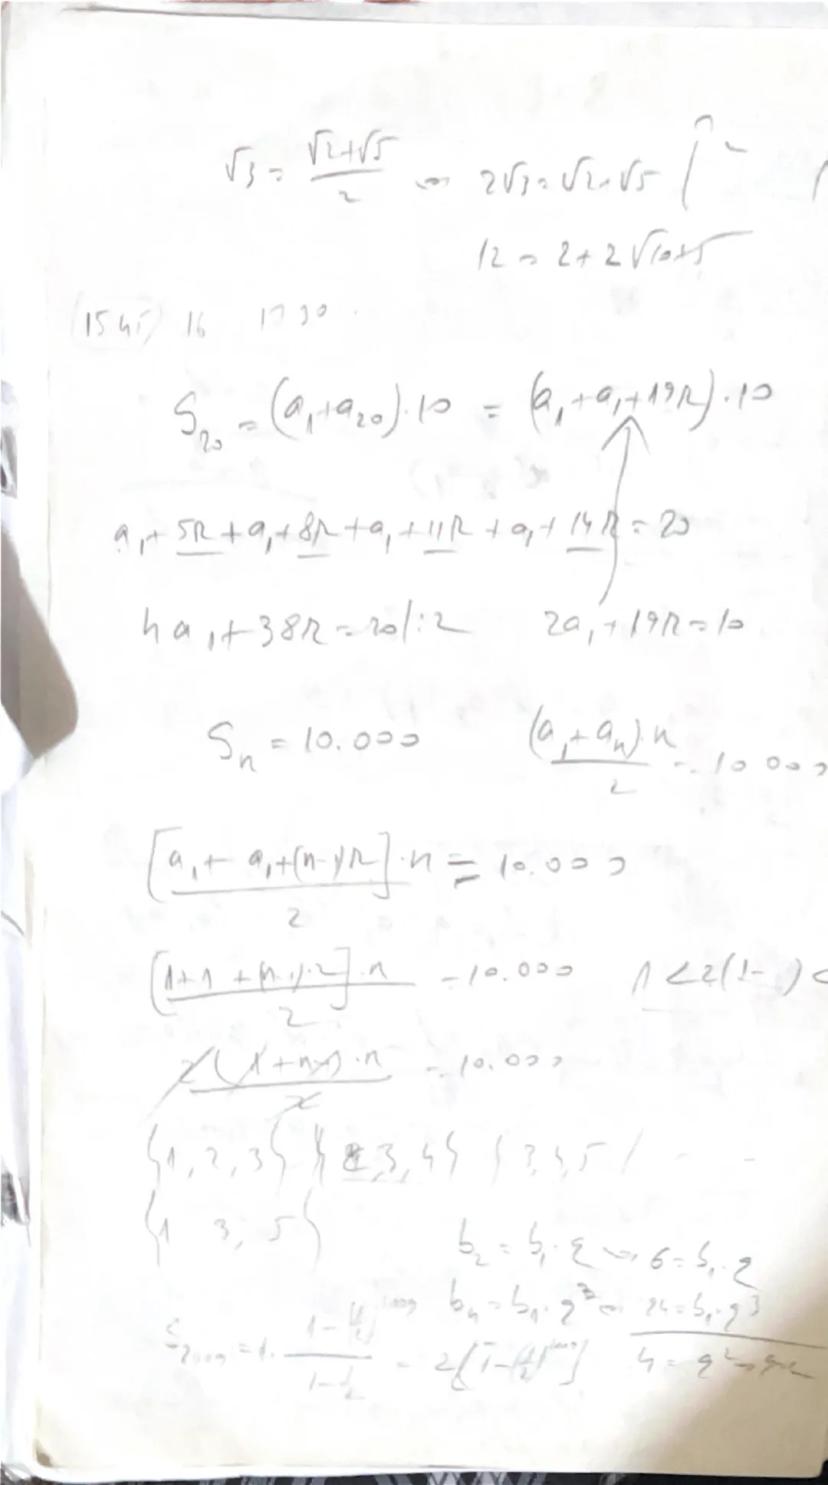 √3 = (√2+√5)/2 ⇒ 2√3 = √2+√5 |²
12 = 2+2√10+5
S₂₀ = (a₁+a₂₀)·10 = (a₁+a₁+19r)·10
a₁+5r+a₁+8r+a₁+11r+a₁+14r = 20
4a₁+38r = 20 |:2 2a₁+19r = 10
Sₙ = 10.000 (a₁+aₙ)·n/2 = 10 000
[a₁+a₁+(n-1)r]·n/2 = 10.000
[1+1+(n-1)·2]·n/2 = 10.000 1<2(1- )<
2(1+n-1)·n/2 = 10.000
{1,2,3} {2,3,4} {3,4,5}
{1 3,5}
b₂ = b₁·q ⇒ 6=b₁·q
b₄ = b₁·q³ ⇒ 24=b₁·q³
4 = q²